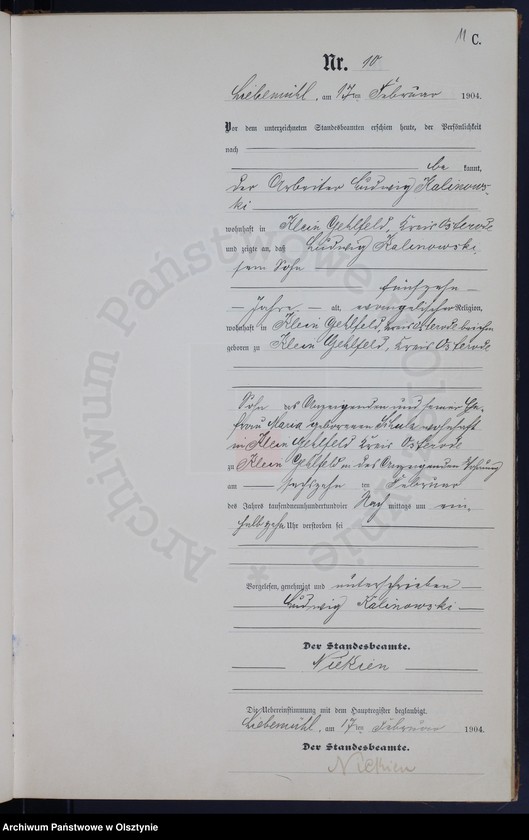 11 C.
Nr. 10
Liebemühl, am 17ten Februar 1904.
Vor dem unterzeichneten Standesbeamten erschien heute, der Persönlichkeit
nach
be kannt,
der Arbeiter Ludwig Kalinows-
ki
wohnhaft in Klein Gehlfeld, Kreis Osterode
und zeigte an, daß Ludwig Kalinowski
sein Sohn
fünfzehn
Jahre alt, evangelischer Religion,
wohnhaft in Klein Gehlfeld, Kreis Osterode
geboren zu Klein Gehlfeld, Kreis Osterode
Sohn des Anzeigenden und seiner Ehe-
frau Maria geborenen wohnhaft
in Klein Gehlfeld Kreis Osterode
zu Klein Gehlfeld in des Anzeigenden Wohnung
am sechszehn ten Februar
des Jahres tausendneunhundertundvier Nach mittags um
Uhr verstorben sei
Vorgelesen, genehmigt und unterschrieben
Ludwig Kalinowski
Der Standesbeamte.
Niekien
Die Uebereinstimmung mit dem Hauptregister beglaubigt.
Liebemühl, am 17ten Februar 1904.
Der Standesbeamte.
Niekien
Archiwum Państwowe w Olsztynie *
Archiwum Państwowe w Olsztynie